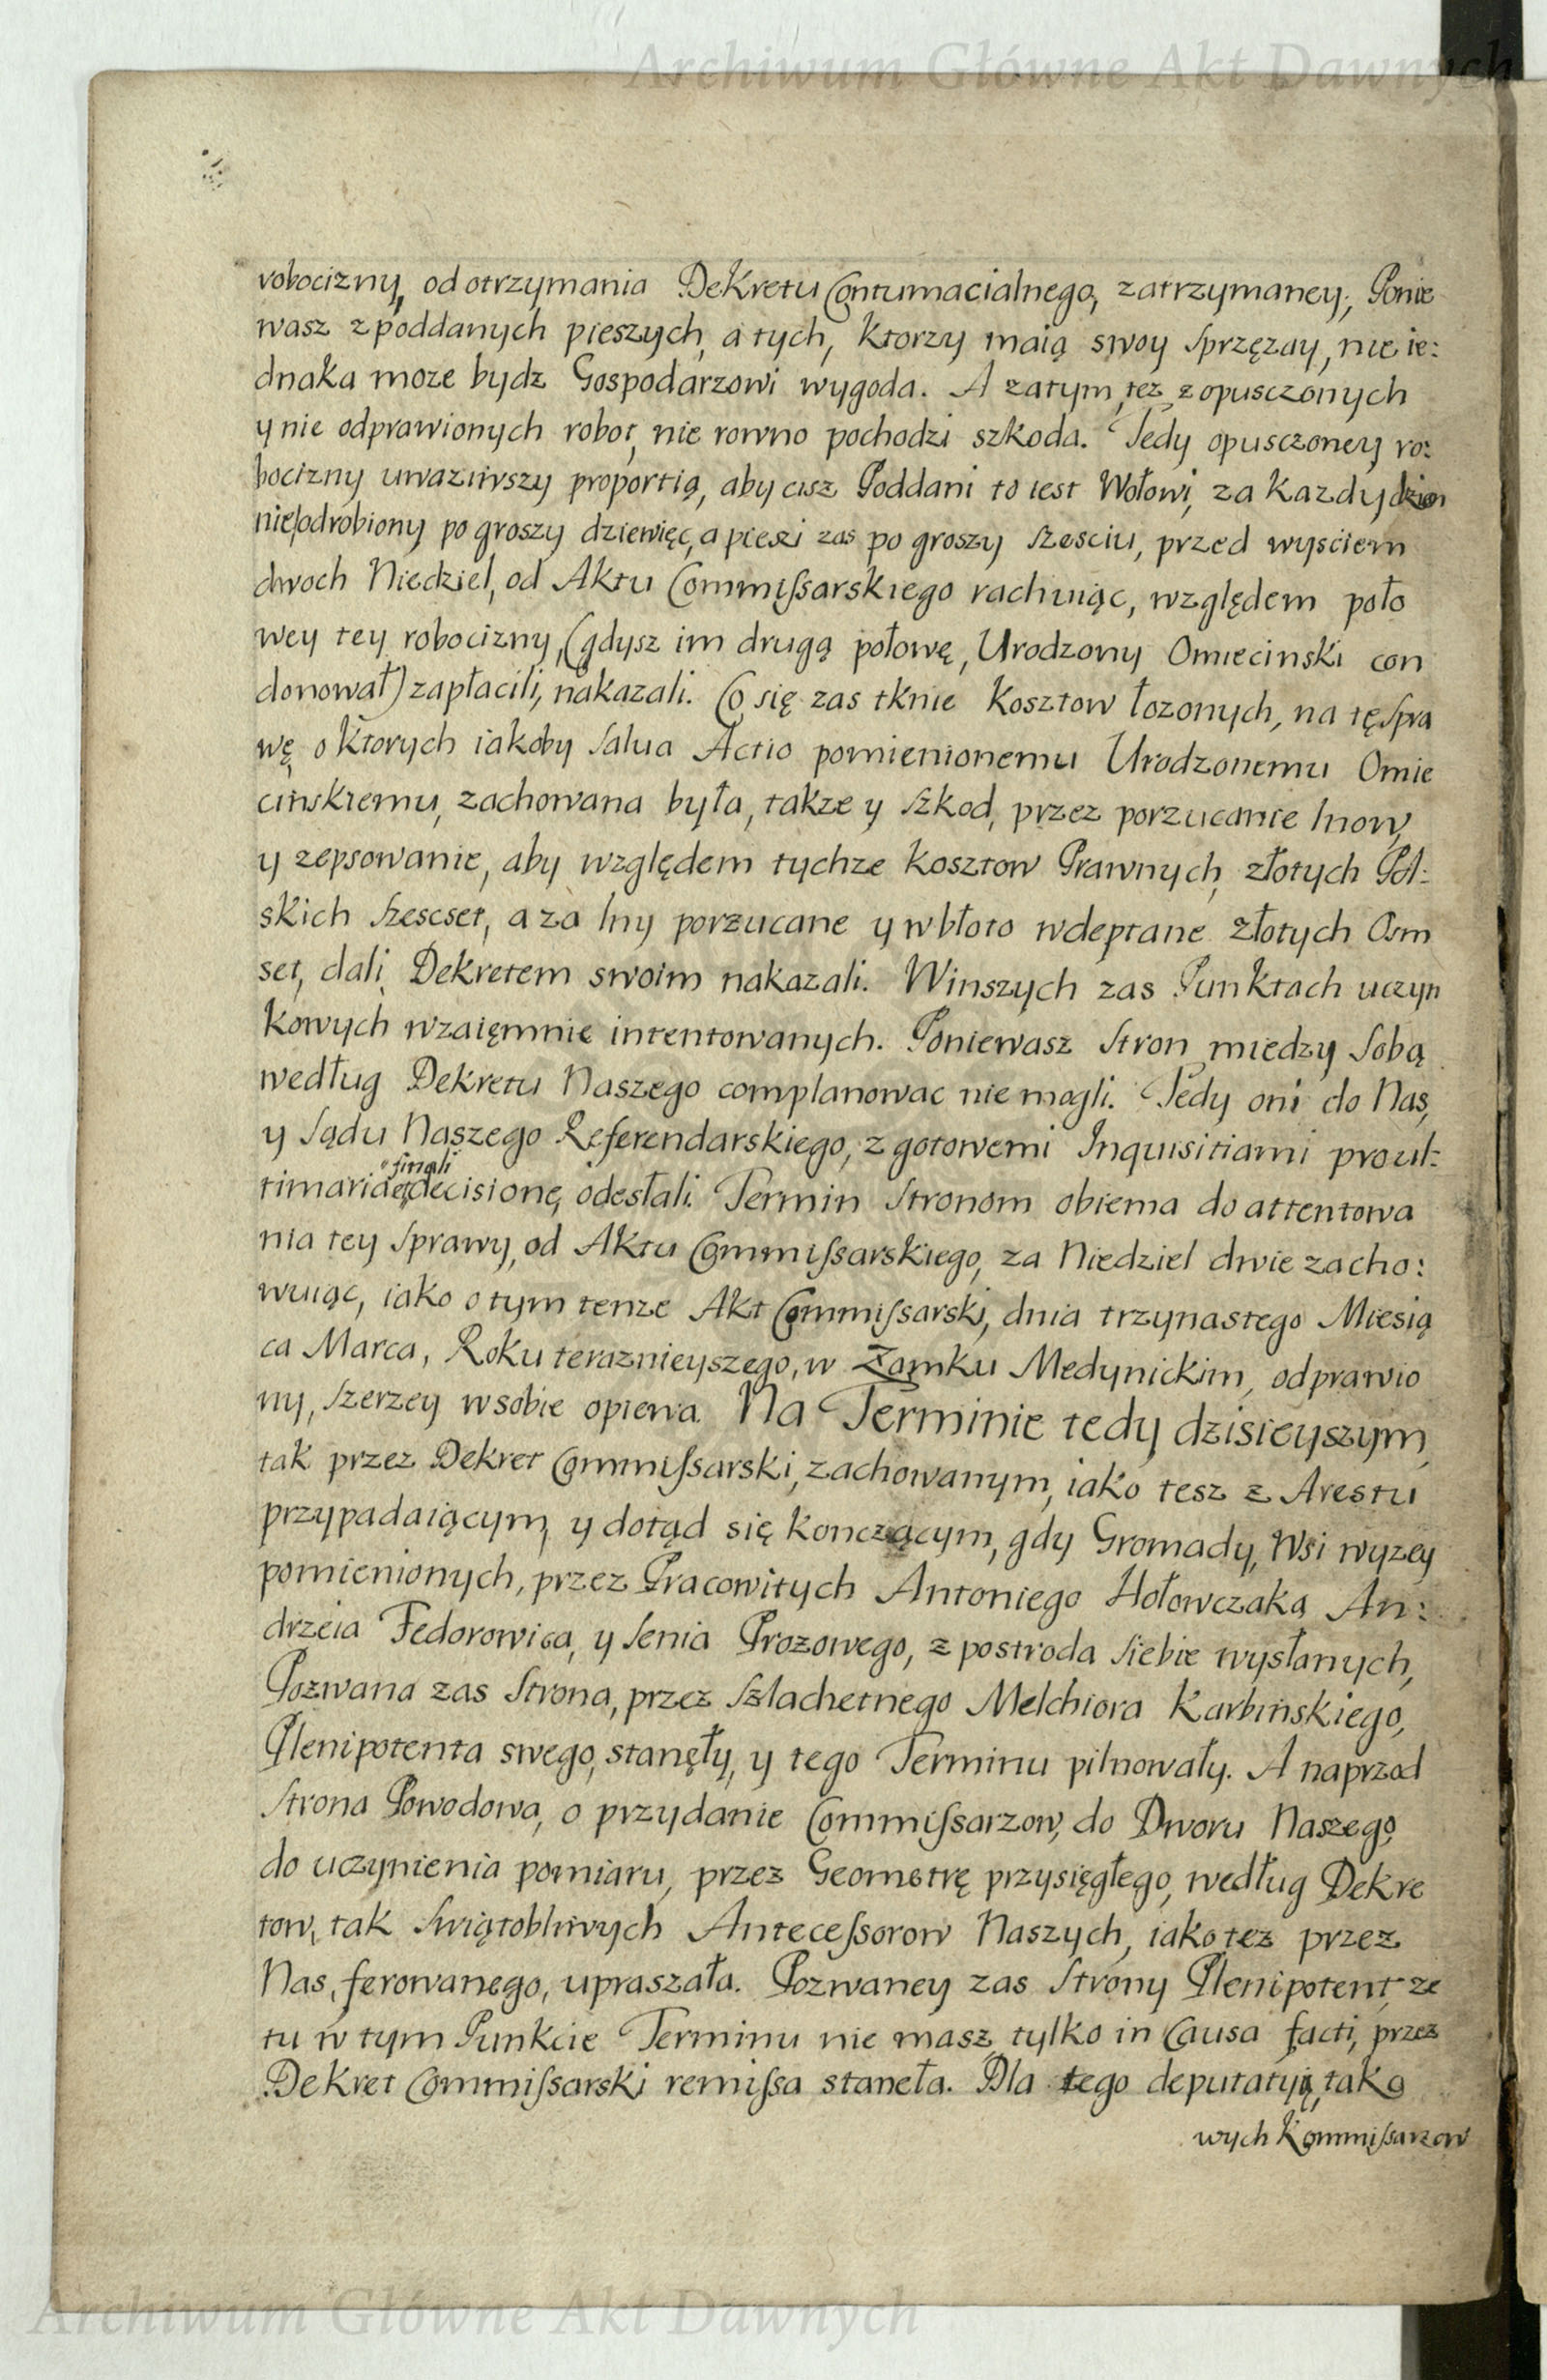 Archiwum Główne Akt Dawnych
robocizny, od otrzymania Dekretu Contumacialnego, zatrzymaney, Ponie
wasz z poddanych pieszych, a tych, ktorzy maią swoy sprzęzay, nie ie:
dnaka moze bydz Gospodarzowi wygoda. A zatym tez z opusczonych
y nie odprawionych robot, nie rowno pochodzi szkoda. Tedy opusczoney ro:
bocizny uwaziwszy proportią, aby cisz Poddani to iest Wołowi, za kazdy dzien
nie odrobiony po groszy dziewięc, a pieszi zas po groszy szesciu, przed wysciem
dwoch Niedziel, od Aktu Commissarskiego rachuiąc, względem poło
wey tey robocizny, (gdysz im drugą połowę, Urodzony Omiecinski con
donował) zapłacili, nakazali. Co się zas tknie Kosztow łozonych, na tę spra
wę o ktorych iakoby salua Actio pomienionemu Urodzonemu Omie
cinskiemu, zachowana była, takze y szkod, przez porzucanie lnow,
y zepsowanie, aby względem tychze kosztow Prawnych, złotych Pol:
skich szescset, a za lny porzucane y w błoto wdeptane złotych Osm
set, dali, Dekretem swoim nakazali. W inszych zas Punktach uczyn
kowych wzaięmnie intentowanych. Poniewasz stron między sobą
według Dekretu Naszego complanowac nie mogli. Tedy oni do Nas,
y sądu Naszego Referendarskiego, z gotowemi Inquisitiami pro ul:
finali
timaria et decisione, odesłali. Termin stronom obiema do attentowa
nia tey sprawy, od Aktu Commissarskiego, za Niedziel dwie zacho:
wuiąc, iako o tym tenze Akt Commissarski, dnia trzynastego Miesią
ca Marca, Roku teraznieyszego, w Zamku Medynickim, odprawio
ny, szerzey w sobie opiewa. Na Terminie tedy dzisieyszym,
tak przez Dekret Commissarski, zachowanym, iako tesz z Arestu
przypadaiącym, y dotąd się konczącym, gdy Gromady, Wsi wyzey
pomienionych, przez Pracowitych Antoniego Hołowczaka, An:
drzeia Fedorowica, y Senia Prozowego, z postroda siebie wysłanych,
Pozwana zas strona, przez szlachetnego Melchiora Karbińskiego,
Plenipotenta swego, stanęły, y tego Terminu pilnowały. A naprzod
strona Powodowa, o przydanie Commissarzow, do Dworu Naszego,
do uczynienia pomiaru, przez Geometrę przysięgłego, według Dekre
tow, tak swiątobliwych Antecessorow Naszych, iako tez przez
Nas, ferowanego, upraszała. Pozwaney zas strony Plenipotent, ze
tu w tym Punkcie Terminu nie masz, tylko in Causa facti, przez
Dekret Commissarski remissa staneła. Dla tego deputatyą, tako
wych Kommissarzow
Archiwum Główne Akt Dawnych